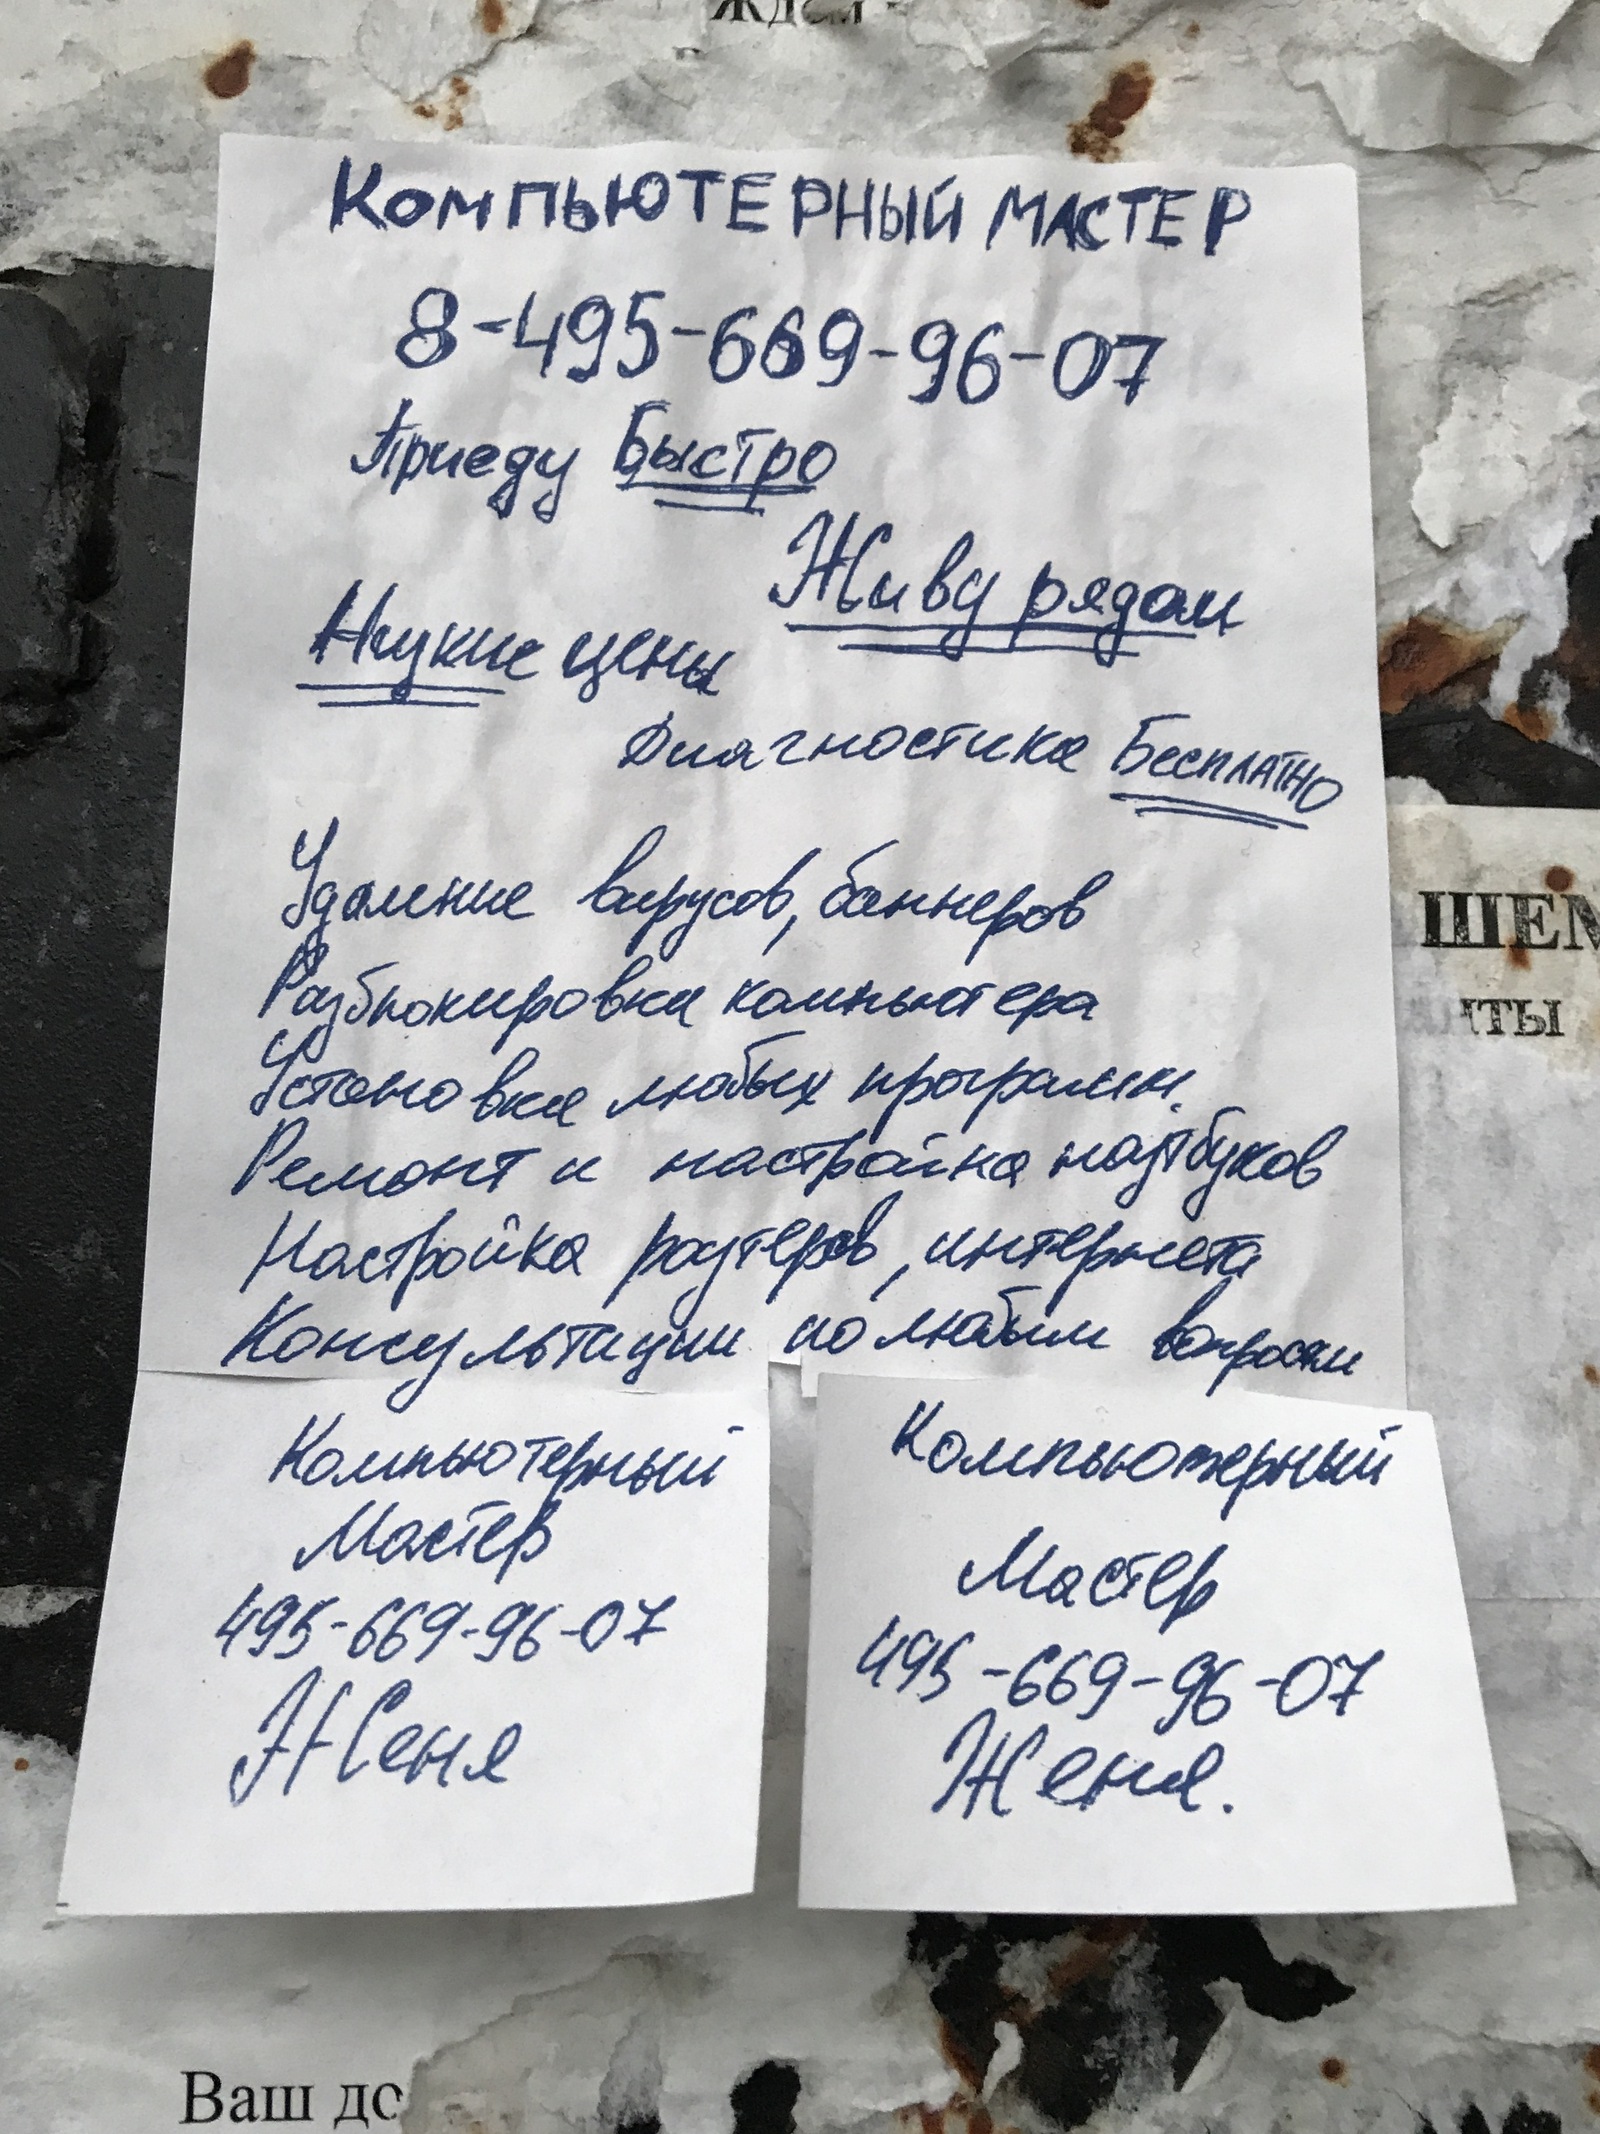 Ждем
КОМПЬЮТЕРНЫЙ МАСТЕР
8-495-669-96-07
Приеду Быстро
Живу рядом
Низкие цены
Диагностика БЕСПЛАТНО
Удаление вирусов, баннеров
Разблокировка компьютера
Установка любых программ.
Ремонт и настройка ноутбуков
Настройка роутеров, интернета
Консультации по любым вопросам
Компьютерный
Мастер
495-669-96-07
Женя
Компьютерный
Мастер
495-669-96-07
Женя.
ШЕМ
ты
Ваш до